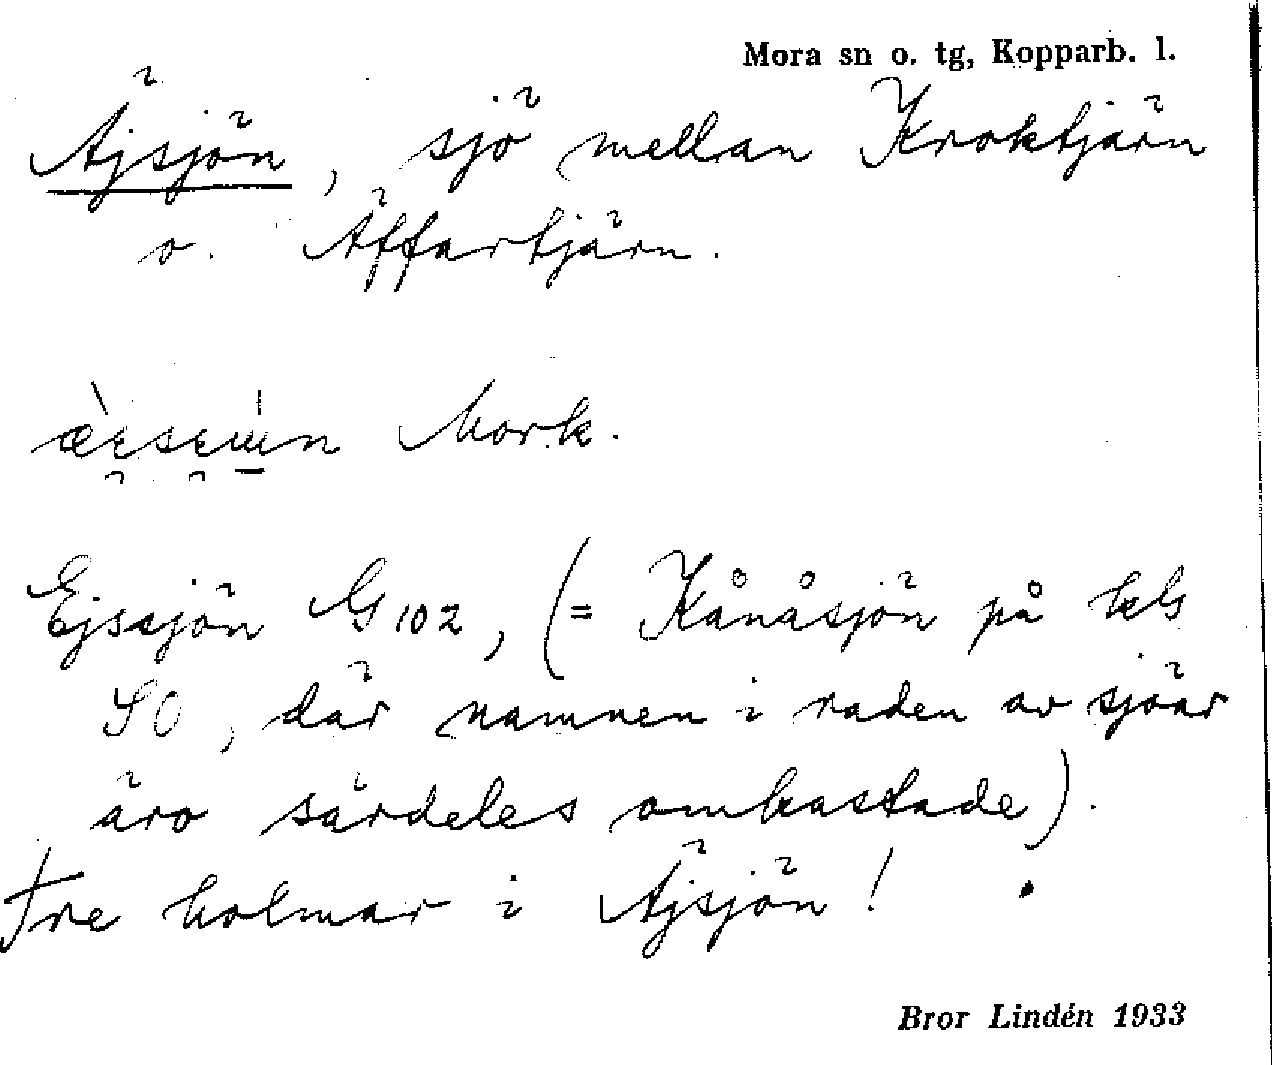 Mora sn o. tg, Kopparb. l.
Äjsjön, sjö mellan Kroktjärn
o. Äffartjärn.
Mork.
Ejssjön G 102, (= Kånåsjön på kbl
SO, där namnen i raden av sjöar
äro särdeles omkastade).
Tre holmar i Äjsjön!
Bror Lindén 1933